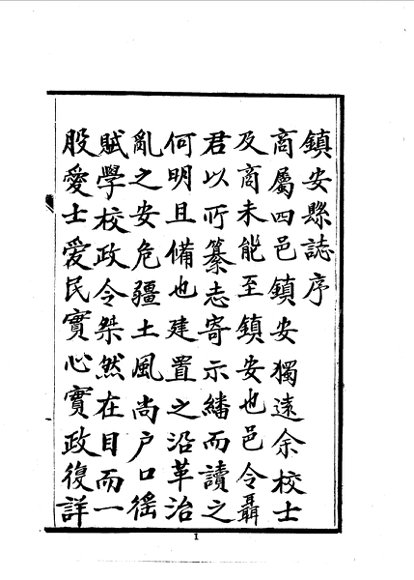 鎮安縣誌序
商屬四邑鎮安獨遠余校士
及商未能至鎮安也邑令聶
君以所纂志寄示繙而讀之
何明且備也建置之沿革治
亂之安危疆土風尚户口徭
賦學校政令桀然在目而一
股愛士爱民實心實政復詳
1